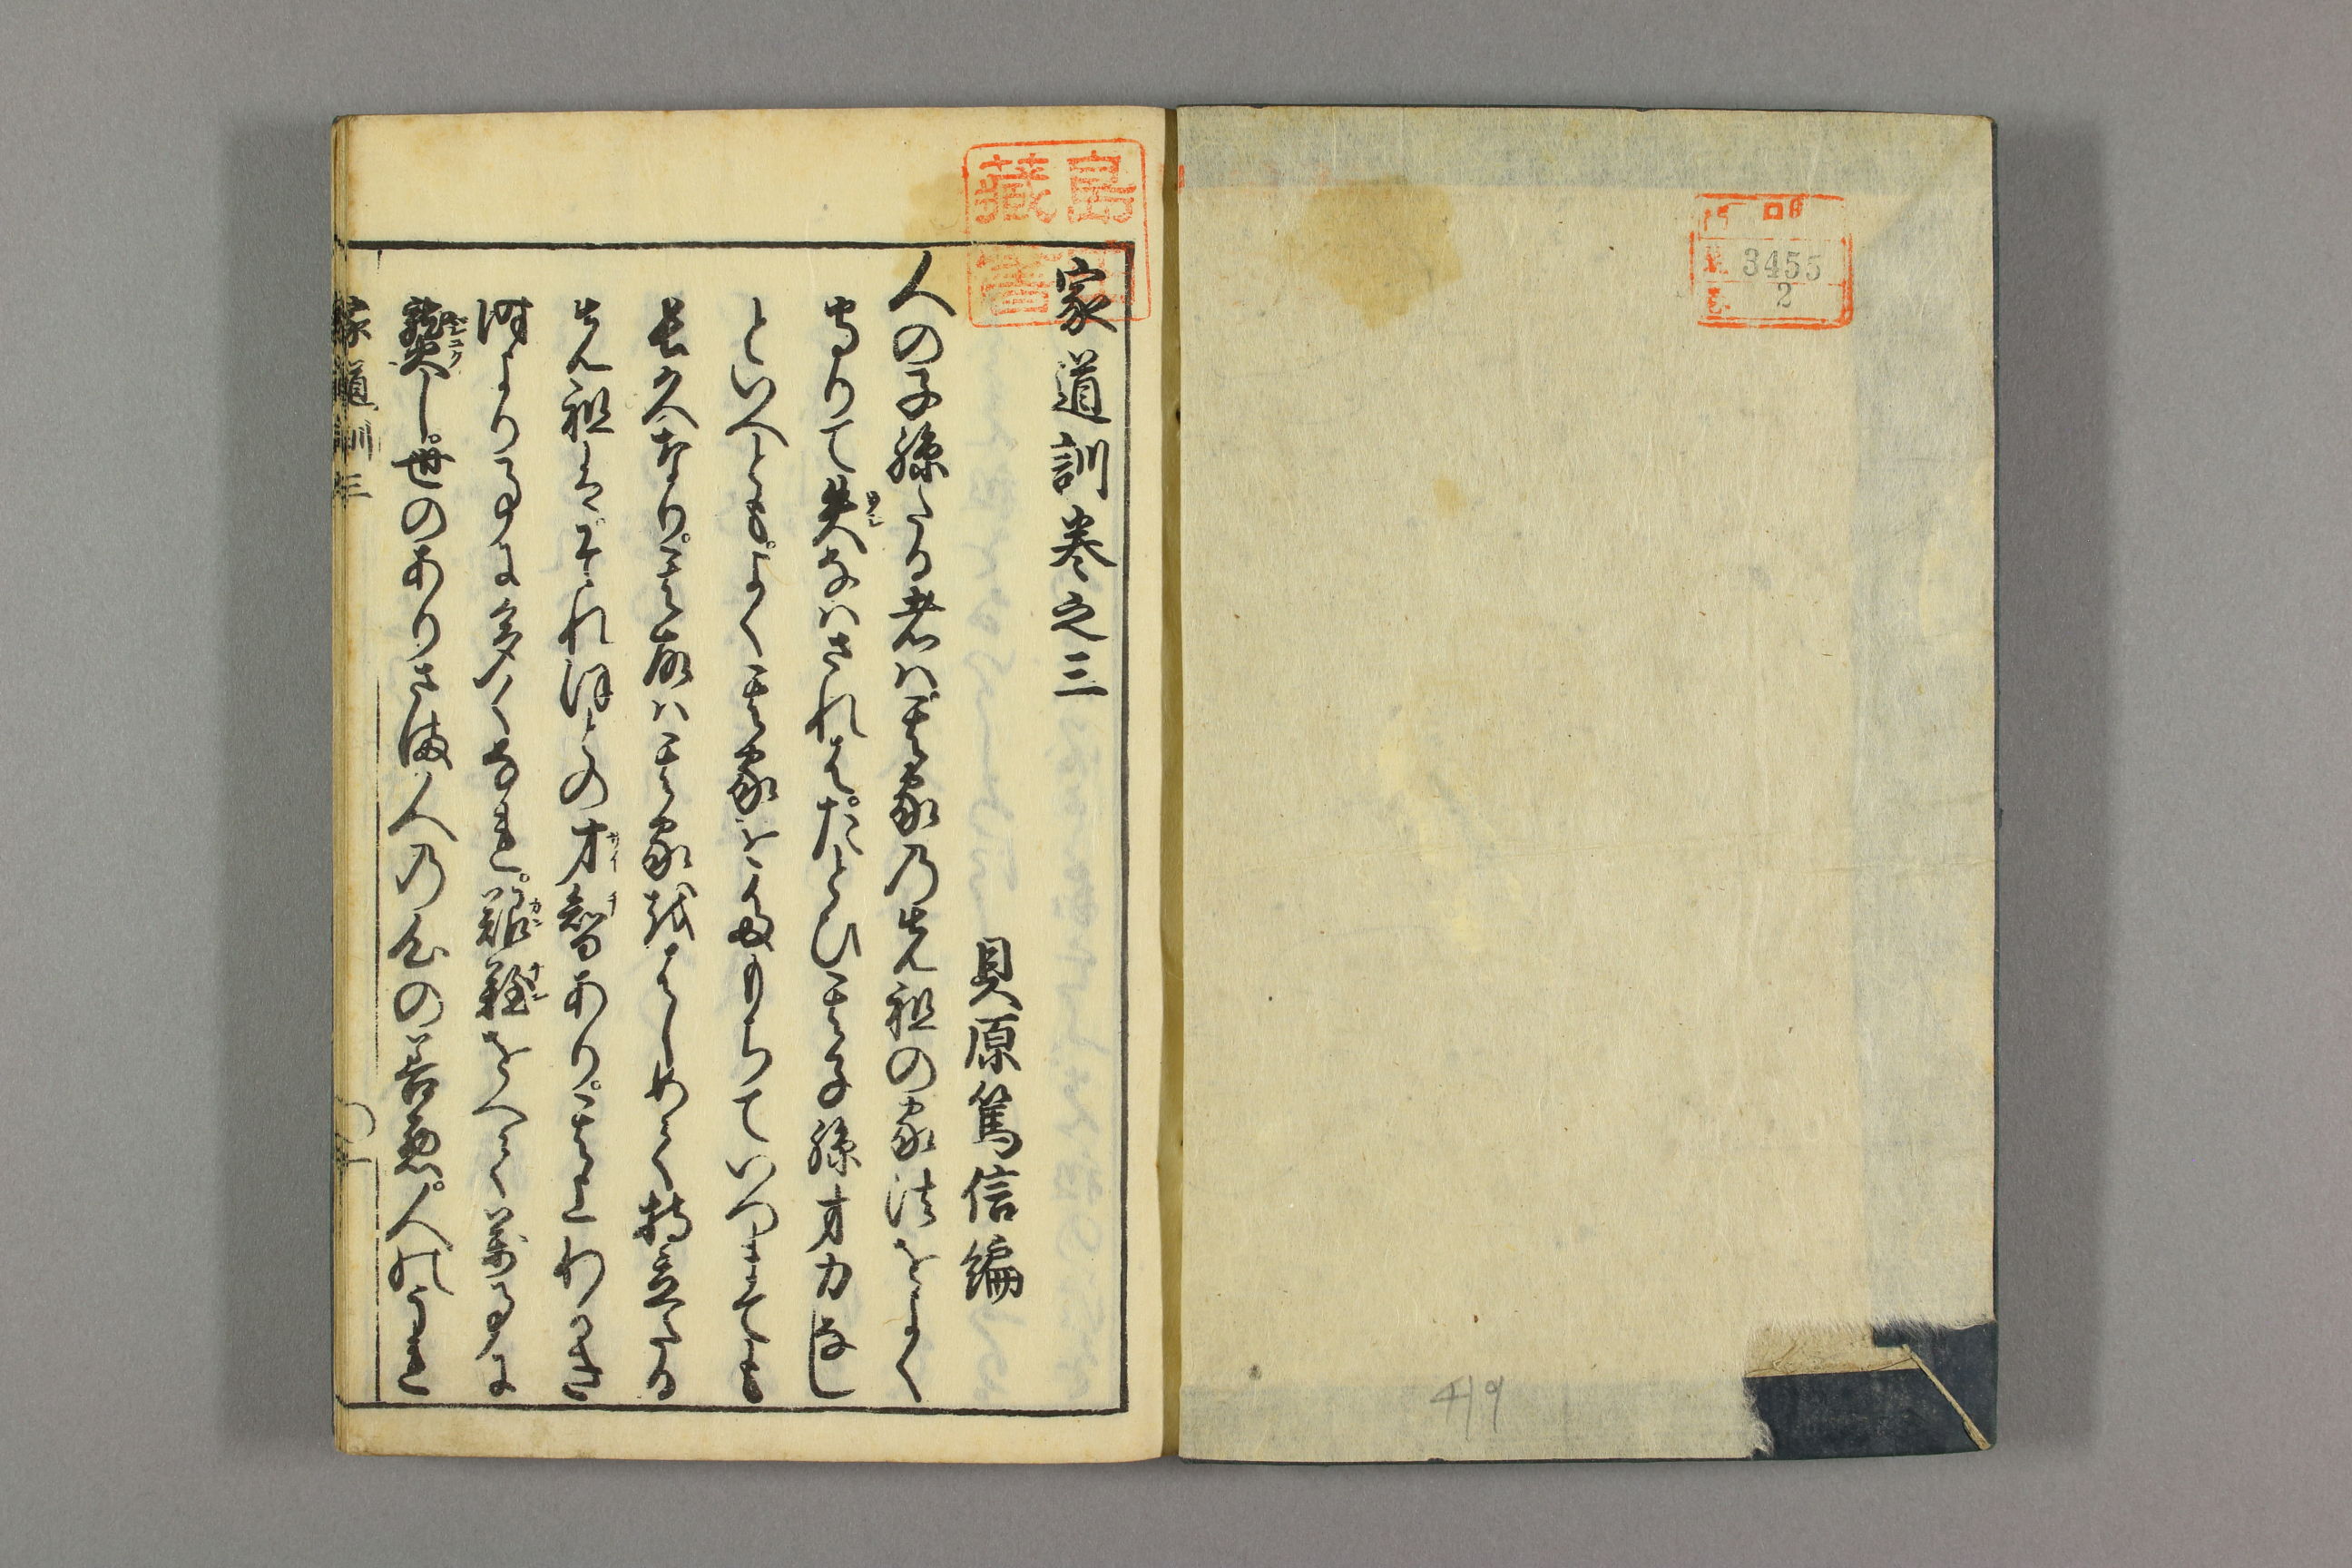 明
3455
2
419
島
藏書
家道訓巻之三
貝原篤信編
人の子孫たる者ハ其家乃先祖の家法をよく
守りて失なハされは。たとひ其子孫才力なし
といへとも。よく其家をたもちていつまても
長久なり。其故ハ其家越はしめて持立たる
先祖は。それほとの才智あり。其上わかき
時よりことに多くなれ。艱難をへて万事に
熟し。世のありさま人乃心の善悪。人のうへ
家道訓三